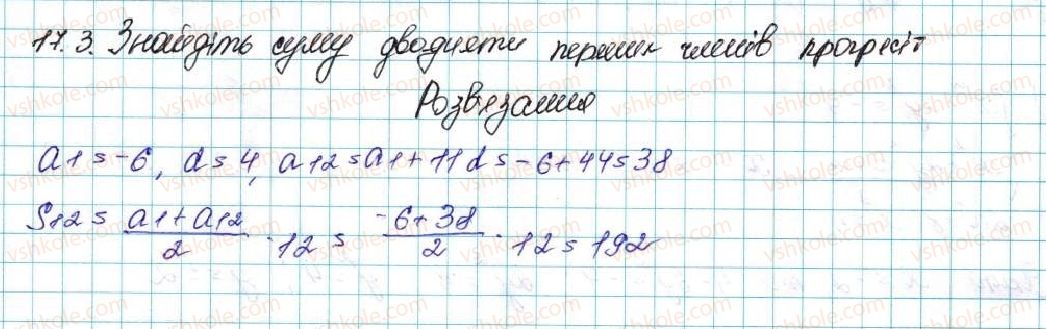 17.3. Знайдіть суму дводцяти перших членів прогресії
Розв'язання
a1 = -6, d = 4, a12 = a1 + 11d = -6 + 44 = 38
S12 = (a1 + a12)/2 · 12 = (-6 + 38)/2 · 12 = 192